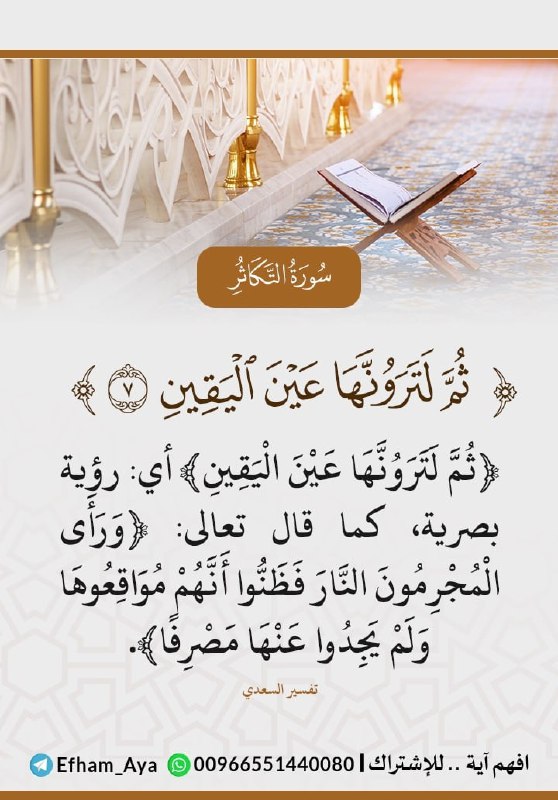 سُورَةُ التَّكَاثُرِ
﴿ ثُمَّ لَتَرَوُنَّهَا عَيْنَ ٱلْيَقِينِ ٧ ﴾
﴿ثُمَّ لَتَرَوُنَّهَا عَيْنَ الْيَقِينِ﴾ أي: رؤية
بصرية، كما قال تعالى: ﴿وَرَأَى
الْمُجْرِمُونَ النَّارَ فَظَنُّوا أَنَّهُمْ مُوَاقِعُوهَا
وَلَمْ يَجِدُوا عَنْهَا مَصْرِفًا﴾.
تفسير السعدي
افهم آية .. للإشتراك | 00966551440080 Efham_Aya